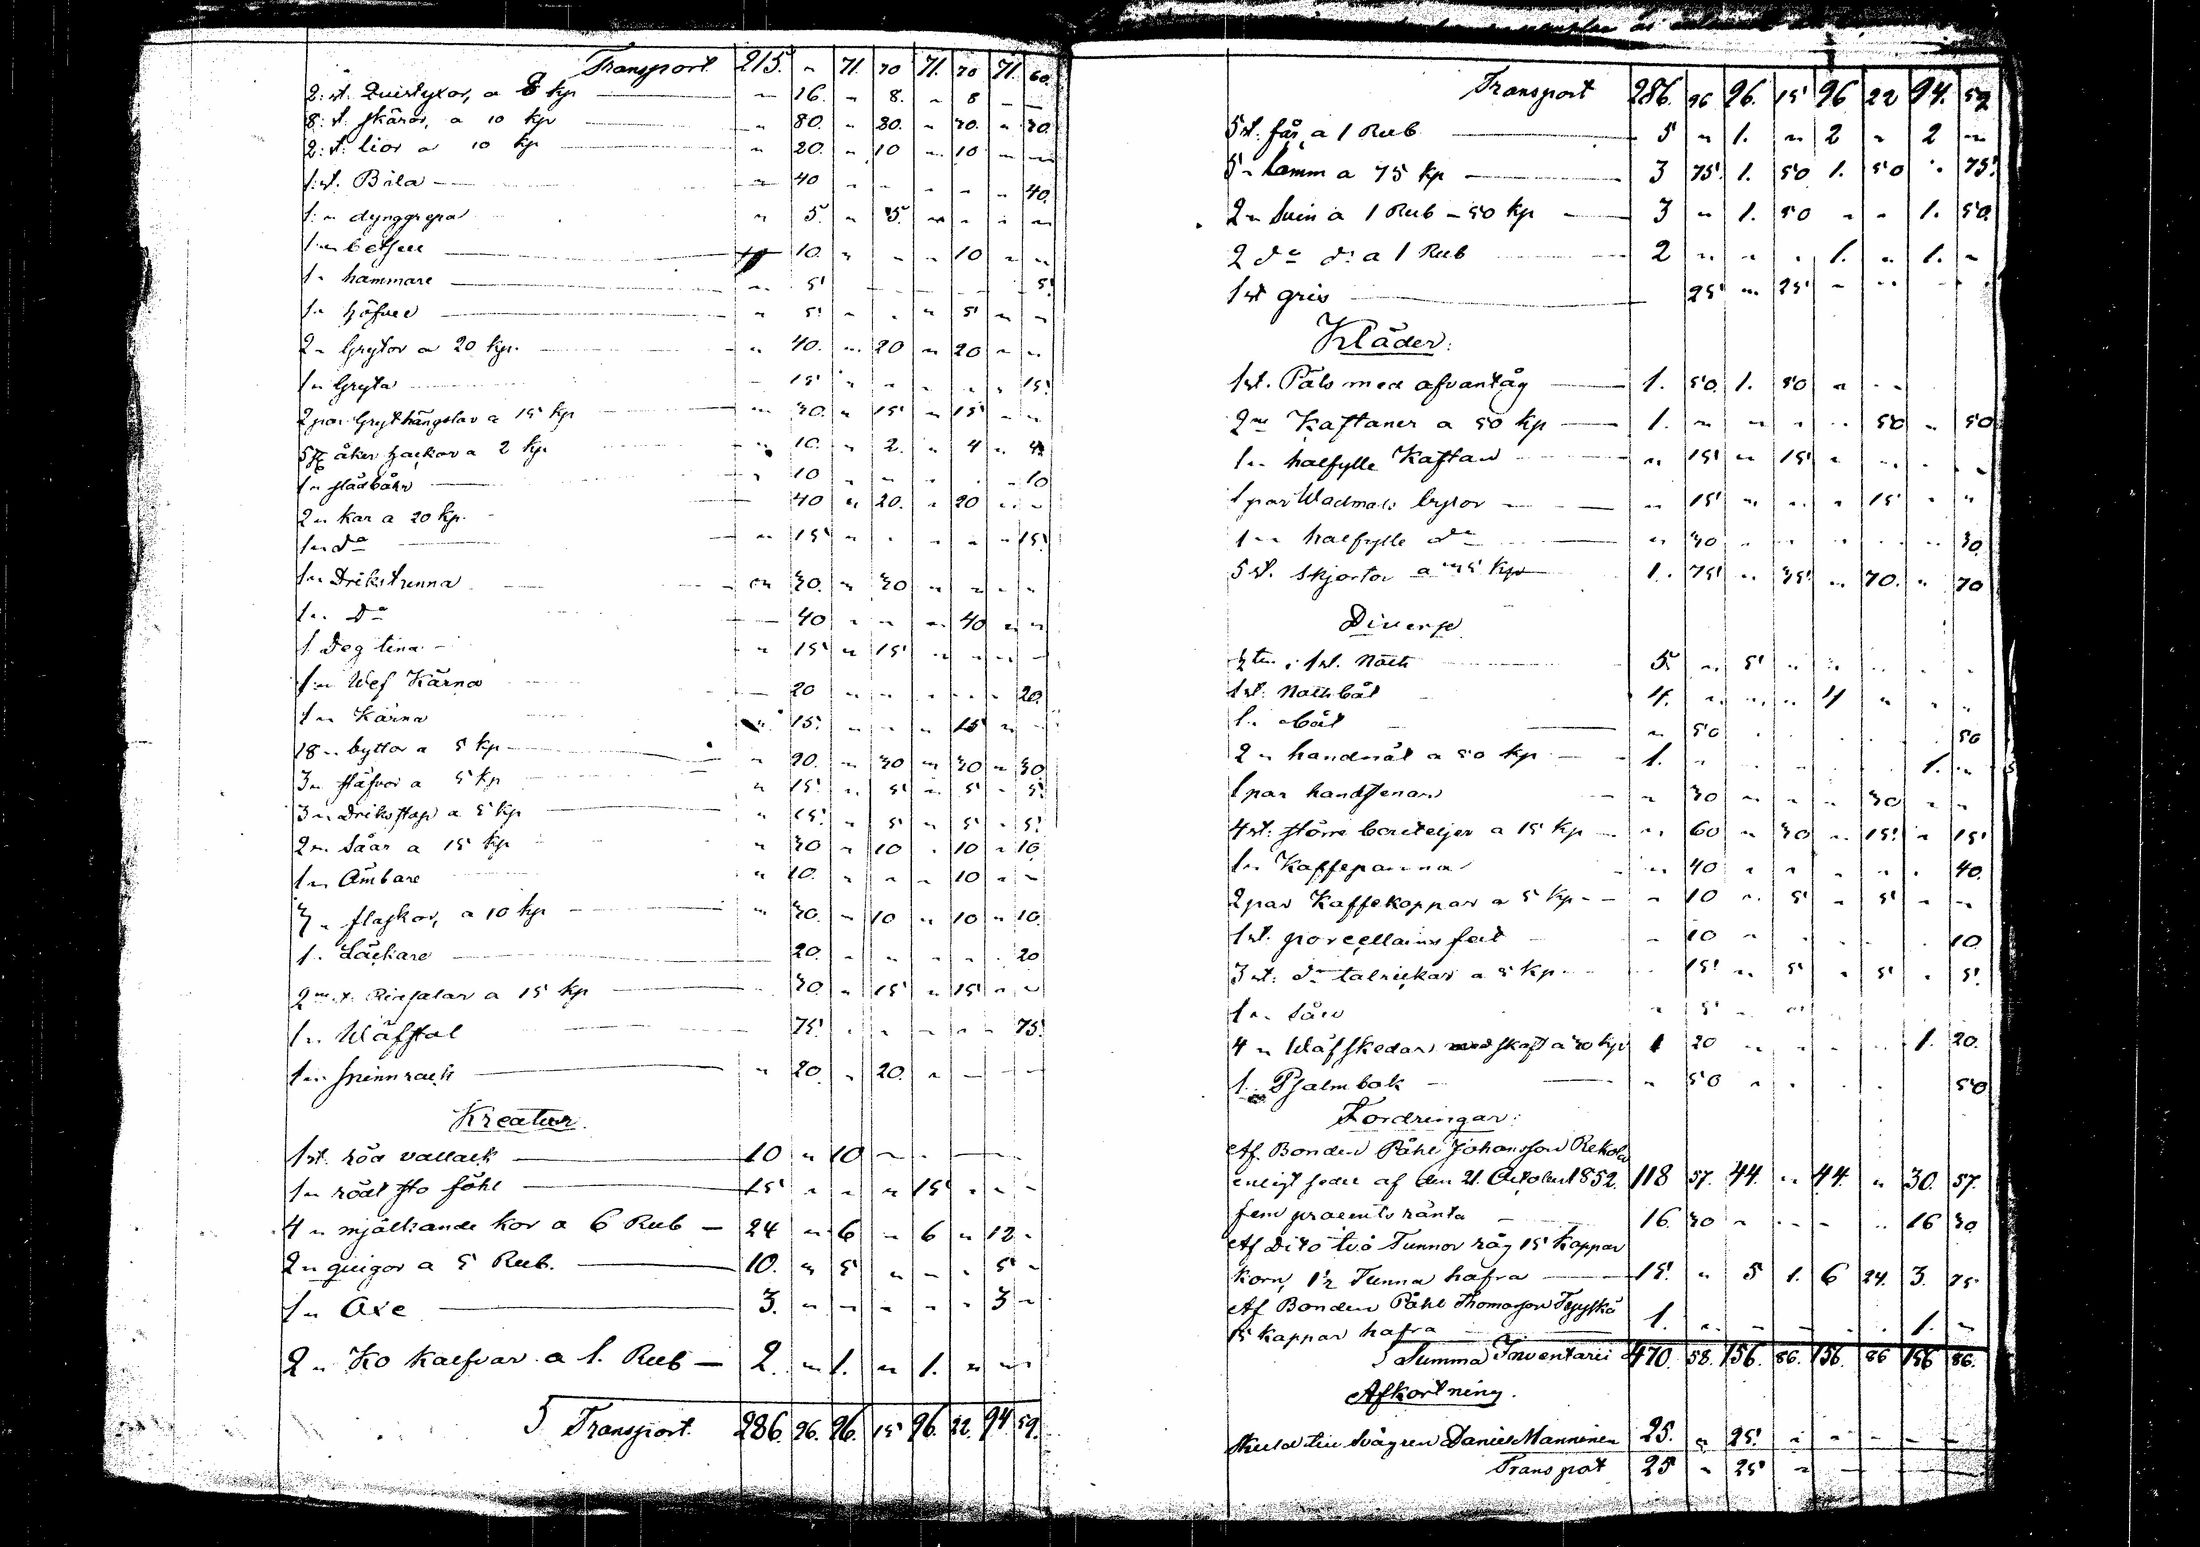 Transport 215. " 71. 70 71. 70 71. 60.
2: st. Quistyxor, a 8 kp " 16. " 8. " 8 " "
8: st. skäror, a 10 kp " 80. " 30. " 30. " 20.
2: st: lior a 10 kp " 20. " 10 " 10 " "
1: st. Bila " 40 " " " " " 40.
1: " dynggrepa " 5. " 5. " " " "
1 " betsel " 10. " " " 10 " "
1 " hammare " 5 " " " " " 5.
1 " höfvel " 5 " " " 5 " "
2 " Grytor a 20 kp. " 40. " 20 " 20 " "
1 " Gryta " 15 " " " " " 15.
2 par Grythängslor a 15 kp " 30. " 15 " 15 " "
5 st åker hackor a 2 kp. " 10. " 2. " 4 " 4
1 " " 10 " " " " " 10
2 " Kar a 20 kp. " 40 " 20. " 20 " "
1 " do " 15 " " " " " 15.
1 " Drikstunna " 30. " 30 " " " "
1 " Do " 40 " " " 40 " "
1 Deg tina " 15 " 15 " " " "
1 " Wef Kärna " 20 " " " " " 20.
1 " Kärna " 15. " " " 15 " "
18 " byttor a 5 kp " 90. " 30 " 30 " 30
3 " stäfvor a 5 kp " 15 " 5 " 5 " 5.
3 " Driksstop a 5 kp " 15. " 5 " 5 " 5.
2 " Såar a 15 kp " 30 " 10 " 10 " 10
1 " Ämbare " 10. " " " 10 " "
3 " flaskor, a 10 kp " 30. " 10 " 10 " 10.
1 " Läckare 20. " " " " " 20
2 " a 15 kp 30. " 15 " 15 " "
1 " Wäfstol 75 " " " " " 75.
1 " spinnrock " 20. " 20. " " " "
Kreatur.
1 st. röd vallack 10 " 10 " " "
1 " rödt sto föhl 15 " " " 15 " " "
4 " mjölkande kor a 6 Rub 24 " 6 " 6 " 12 "
2 " quigor a 5 Rub. 10. " 5 " " " 5 "
1 " Oxe 3. " " " " " 3 "
2 " Ko kalfvar a 1. Rub 2. " 1. " 1. " " "
Transport. 286. 96. 96. 15 96. 22. 94. 59.
Transport 286. 96 96. 15 96 22 94. 59
5 st. får, a 1 Rub 5 " 1. " 2 " 2 "
5 " Lamm a 75 kp 3 75. 1. 50 1. 50 " 75.
2 " Svin a 1 Rub 50 kp 3 " 1. 50 " " 1. 50.
2 do do a 1 Rub 2 " " " 1. " 1. "
1 st gris 25 " 25 " " " "
Kläder:
1 st. Päls med afvantåg 1. 50. 1. 50 " " "
2 " Kaftaner a 50 kp 1. " " " " 50 " 50
1 " halfylle Kaftan " 15 " 15 " " " "
1 par Wadmals byxor " 15 " " " 15 " "
1 " halfylle do " 30 " " " " " 30
5 st. skjortor a 35 kp 1. 75 " 35 " 70. " 70
Diverse
1 st. Noth 5. " 5 " " " "
1 st. Nothbåt 4. " " " 4 " " "
1 " båt " 50 " " " " " 50
2 " handnät a 50 kp 1. " " " " " 1. "
1 par handstenar " 30 " " " 30 " "
4 st: större bouteljer a 15 kp " 60 " 30 " 15. " 15
1 " Kaffepanna " 40 " " " " " 40.
2 par Kaffekoppar a 5 kp " 10 " 5 " 5 " "
1 st. porcellains fat " 10 " " " " " 10.
3 st: do talrickar a 5 kp " 15 " 5 " 5 " 5.
1 " Såll " 5 " " "
4 " Wäfskedar med skaft a 30 kp 1 20 " " " " 1. 20.
1 " Psalmbok " 50 " " " " " 50
Fordringar:
Af Bonden Påhl Johansson Rekola
enligt sedel af den 21. October 1852. 118 57. 44. " 44. " 30. 57.
fem procents ränta 16. 30 " " " " 16 30
Af Dito två Tunnor råg 15 Kappar
korn, 1½ Tunna hafra 15. " 5 1. 6 24. 3. 75.
Af Bonden Påhl Thomasson
15 kappar hafra 1. " " " " " 1. "
Summa Inventarii 470. 58. 156. 86. 156. 86 156 86.
Afkortning.
Skuld till Svågren Daniel Manninen 25. " 25. " " " " "
Transpot 25 " 25 " " " "